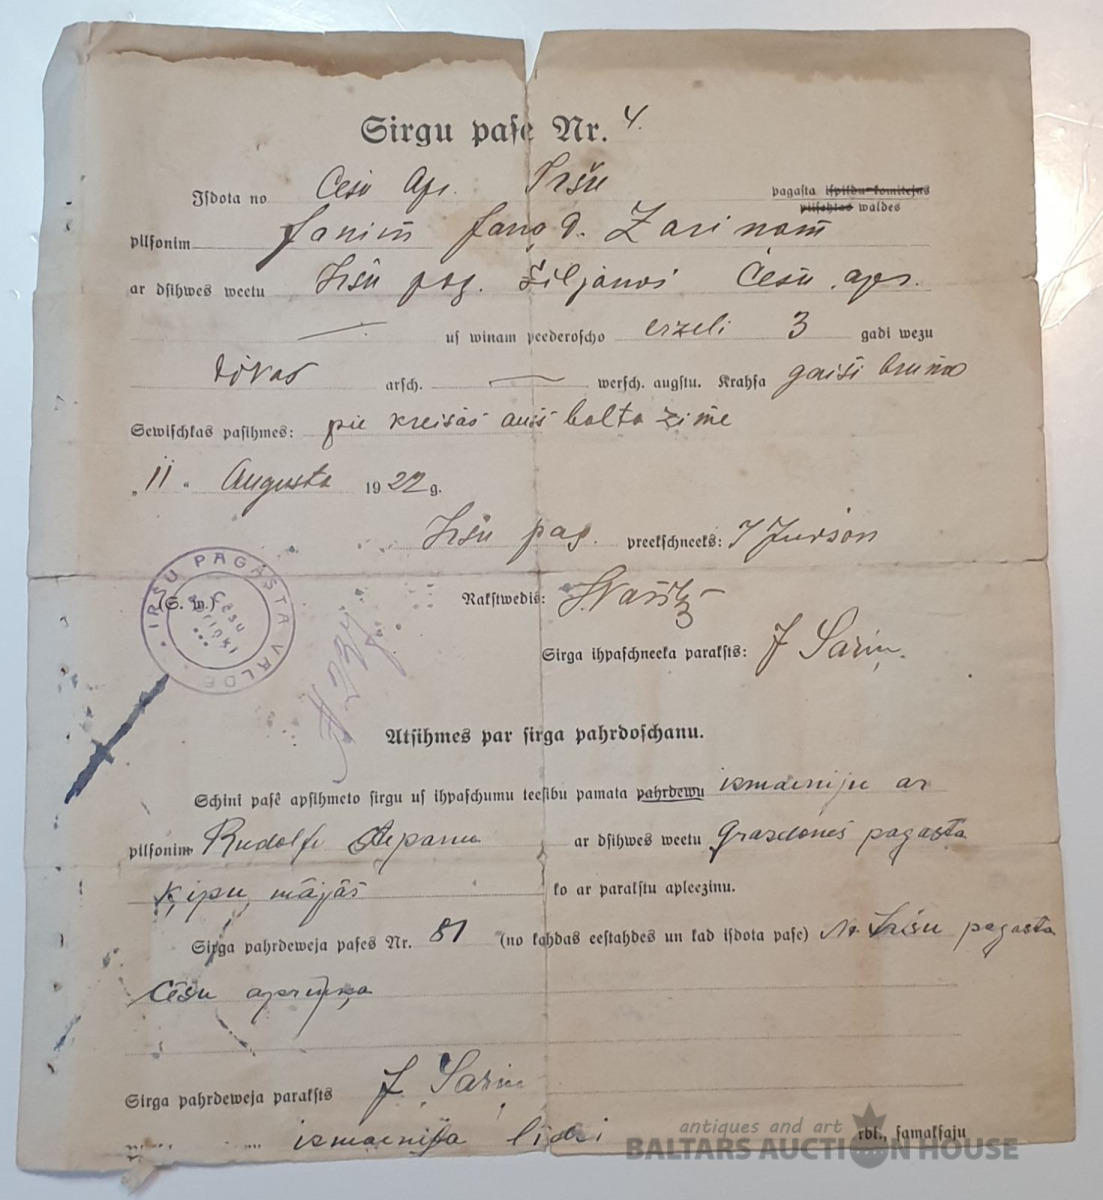 Sirgu pase Nr. 4.
Isdota no Cēsu Apr. Iršu pagasta ispildu-komitejas
pilsehtas waldes
pilsonim Janim Jāņa d. Zariņam
ar dsihwes weetu Iršu pag. Siljānos Cēsu apr.
us winam peederoscho erzeli 3 gadi wezu
arsch. wersch. augstu. Krahsa gaiši bruna
Sewischkas pasihmes: pie kreisās auss balta zīme
"11" Augusta 1922 g.
Iršu pag. preekschneeks: J Jurson
(S. w.)
IRSU PAGASTA VALDE
Cēsu apriņķī
Rakstwedis:
Sirga ihpaschneeka paraksts: J Sariņ.
Atsihmes par sirga pahrdoschanu.
Schini pasē apsihmeto sirgu us ihpaschumu teesibu pamata pahrdewu ismainiju ar
pilsonim Rudolfu ar dsihwes weetu Grasdones pagasta
Ķipu mājās ko ar parakstu apleezinu.
Sirga pahrdeweja pases Nr. 81 (no kahdas eestahdes un kad isdota pase) Iršu pagasta
Cēsu apriņķa
Sirga pahrdeweja paraksts J. Sariņ
ismainija līdzi rbl., samaksaju
antiques and art
BALTARS AUCTION HOUSE